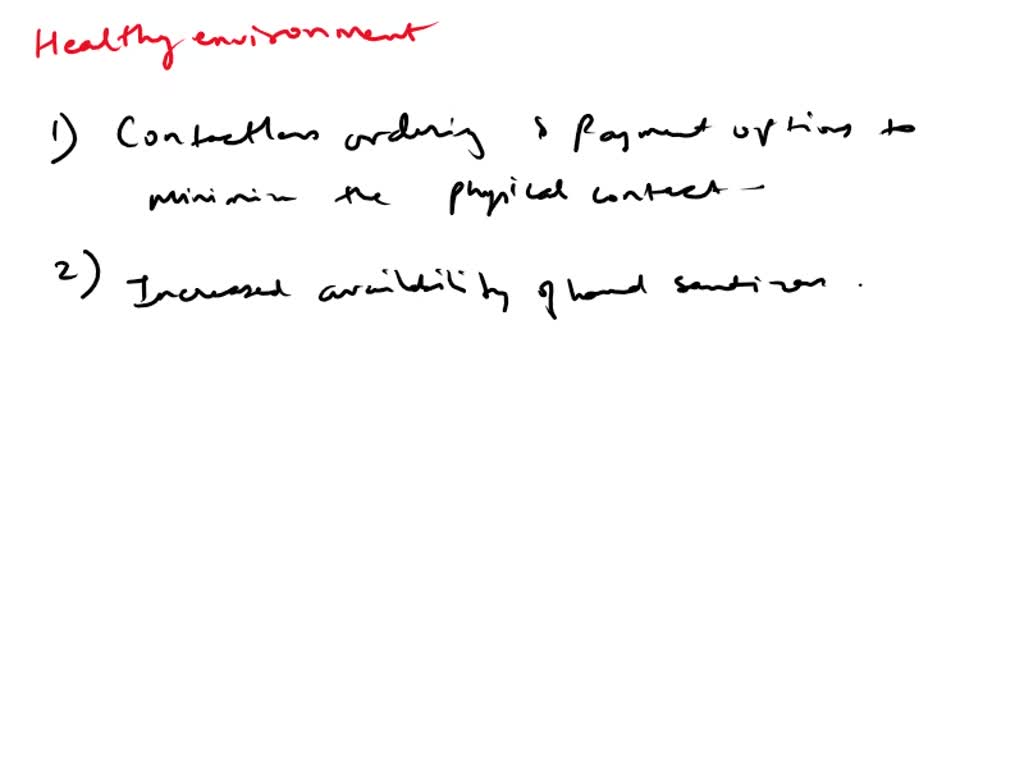 Healthy environment
1) Contactless ordering & Payment options to
minimize the physical contact -
2) Increased availability of hand sanitizers .